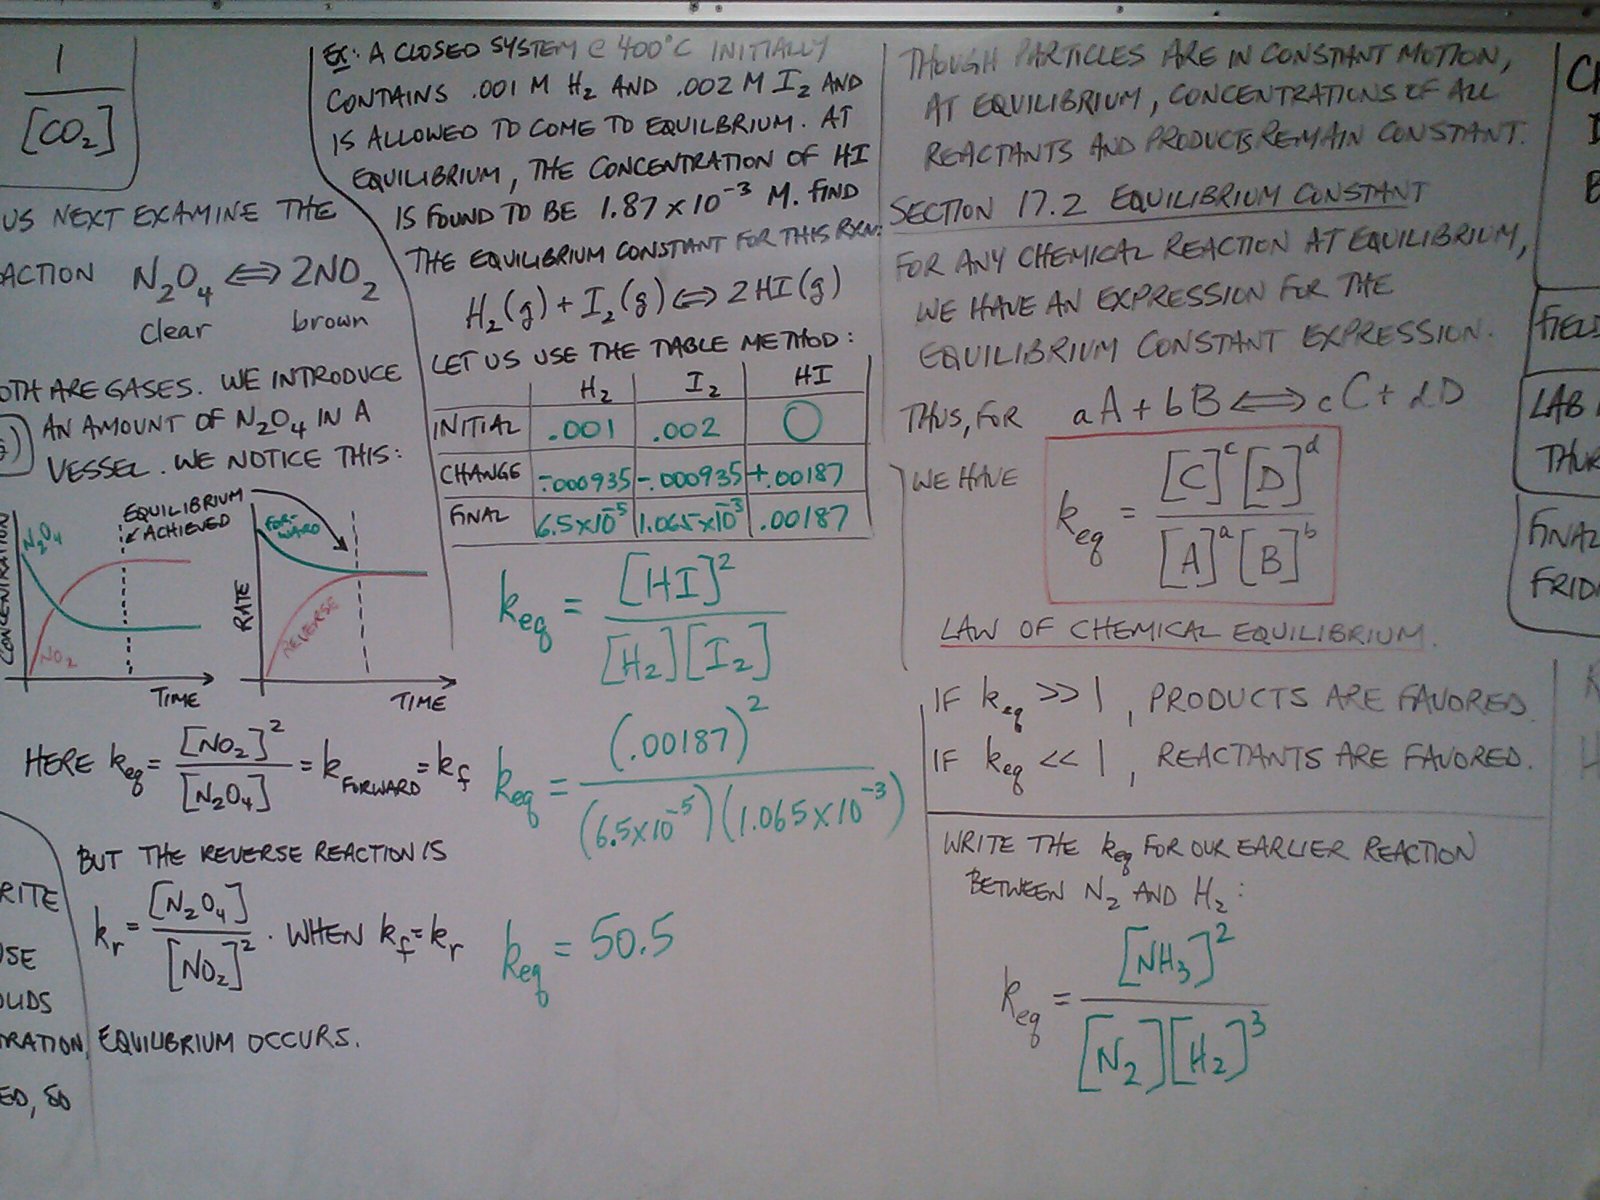 1
[CO₂]
US NEXT EXAMINE THE
ACTION N₂O₄ ⇔ 2NO₂
clear brown
OTH ARE GASES. WE INTRODUCE
AN AMOUNT OF N₂O₄ IN A
VESSEL. WE NOTICE THIS:
EQUILIBRIUM
ACHIEVED
CONCENTRATION
N₂O₄
NO₂
TIME
RATE
FOR-
WARD
REVERSE
TIME
HERE keq = [NO₂]² / [N₂O₄] = kFORWARD = kf
BUT THE REVERSE REACTION IS
kr = [N₂O₄] / [NO₂]² . WHEN kf = kr
EQUILIBRIUM OCCURS.
RITE
USE
OLIDS
TRATION
ED, SO
EX: A CLOSED SYSTEM @ 400°C INITIALLY
CONTAINS .001 M H₂ AND .002 M I₂ AND
IS ALLOWED TO COME TO EQUILBRIUM. AT
EQUILIBRIUM, THE CONCENTRATION OF HI
IS FOUND TO BE 1.87 x 10⁻³ M. FIND
THE EQUILIBRIUM CONSTANT FOR THIS RXN:
H₂(g) + I₂(g) ⇔ 2HI(g)
LET US USE THE TABLE METHOD:
H₂ I₂ HI
INITIAL .001 .002 0
CHANGE -.000935 -.000935 +.00187
FINAL 6.5x10⁻⁵ 1.065x10⁻³ .00187
keq = [HI]² / [H₂][I₂]
keq = (.00187)² / (6.5x10⁻⁵)(1.065x10⁻³)
keq = 50.5
THOUGH PARTICLES ARE IN CONSTANT MOTION,
AT EQUILIBRIUM, CONCENTRATIONS OF ALL
REACTANTS AND PRODUCTS REMAIN CONSTANT.
SECTION 17.2 EQUILIBRIUM CONSTANT
FOR ANY CHEMICAL REACTION AT EQUILIBRIUM,
WE HAVE AN EXPRESSION FOR THE
EQUILIBRIUM CONSTANT EXPRESSION.
THUS, FOR aA + bB ⇔ cC + dD
WE HAVE keq = [C]ᶜ[D]ᵈ / [A]ᵃ[B]ᵇ
LAW OF CHEMICAL EQUILIBRIUM.
IF keq >> 1, PRODUCTS ARE FAVORED.
IF keq << 1, REACTANTS ARE FAVORED.
WRITE THE keq FOR OUR EARLIER REACTION
BETWEEN N₂ AND H₂:
keq = [NH₃]² / [N₂][H₂]³
FIELD
LAB
THUR
FINAL
FRID